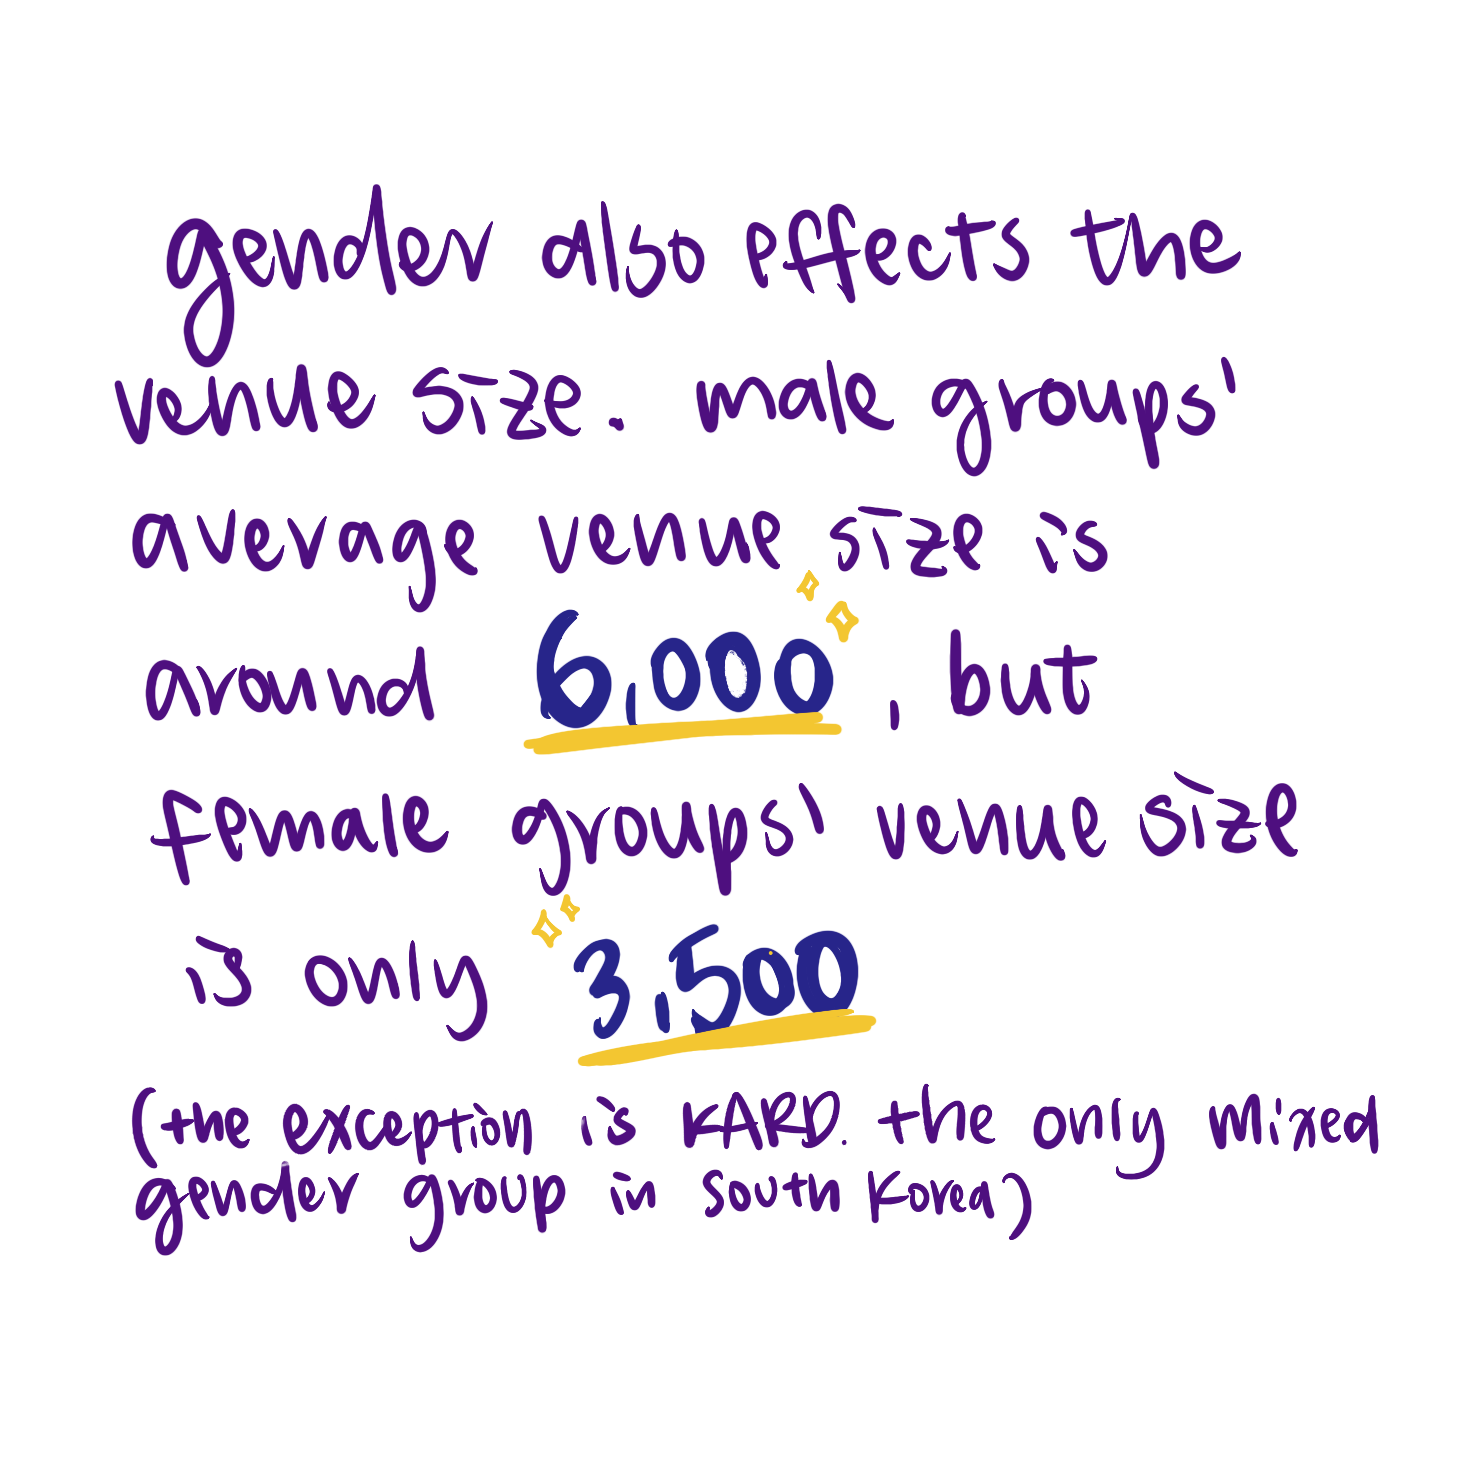 gender also effects the
venue size. male groups'
average venue size is
around 6,000, but
female groups' venue size
is only 3,500
(the exception is KARD. the only mixed
gender group in South Korea)